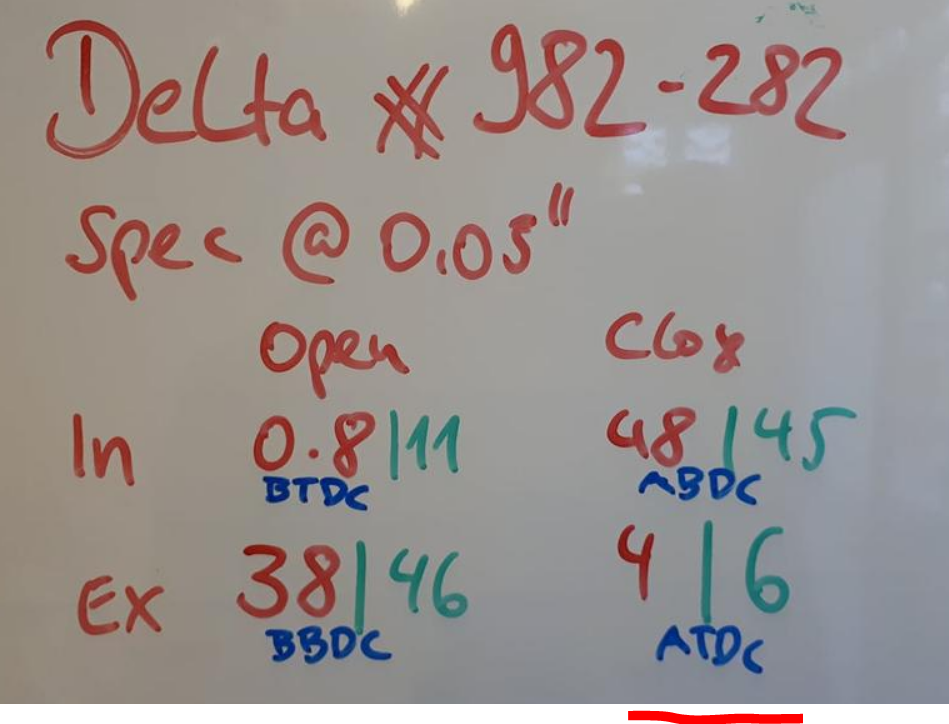 Delta # 982-282
Spec @ 0.05"
Open Close
In 0.8|11 48|45
BTDC ABDC
Ex 38|46 4|6
BBDC ATDC